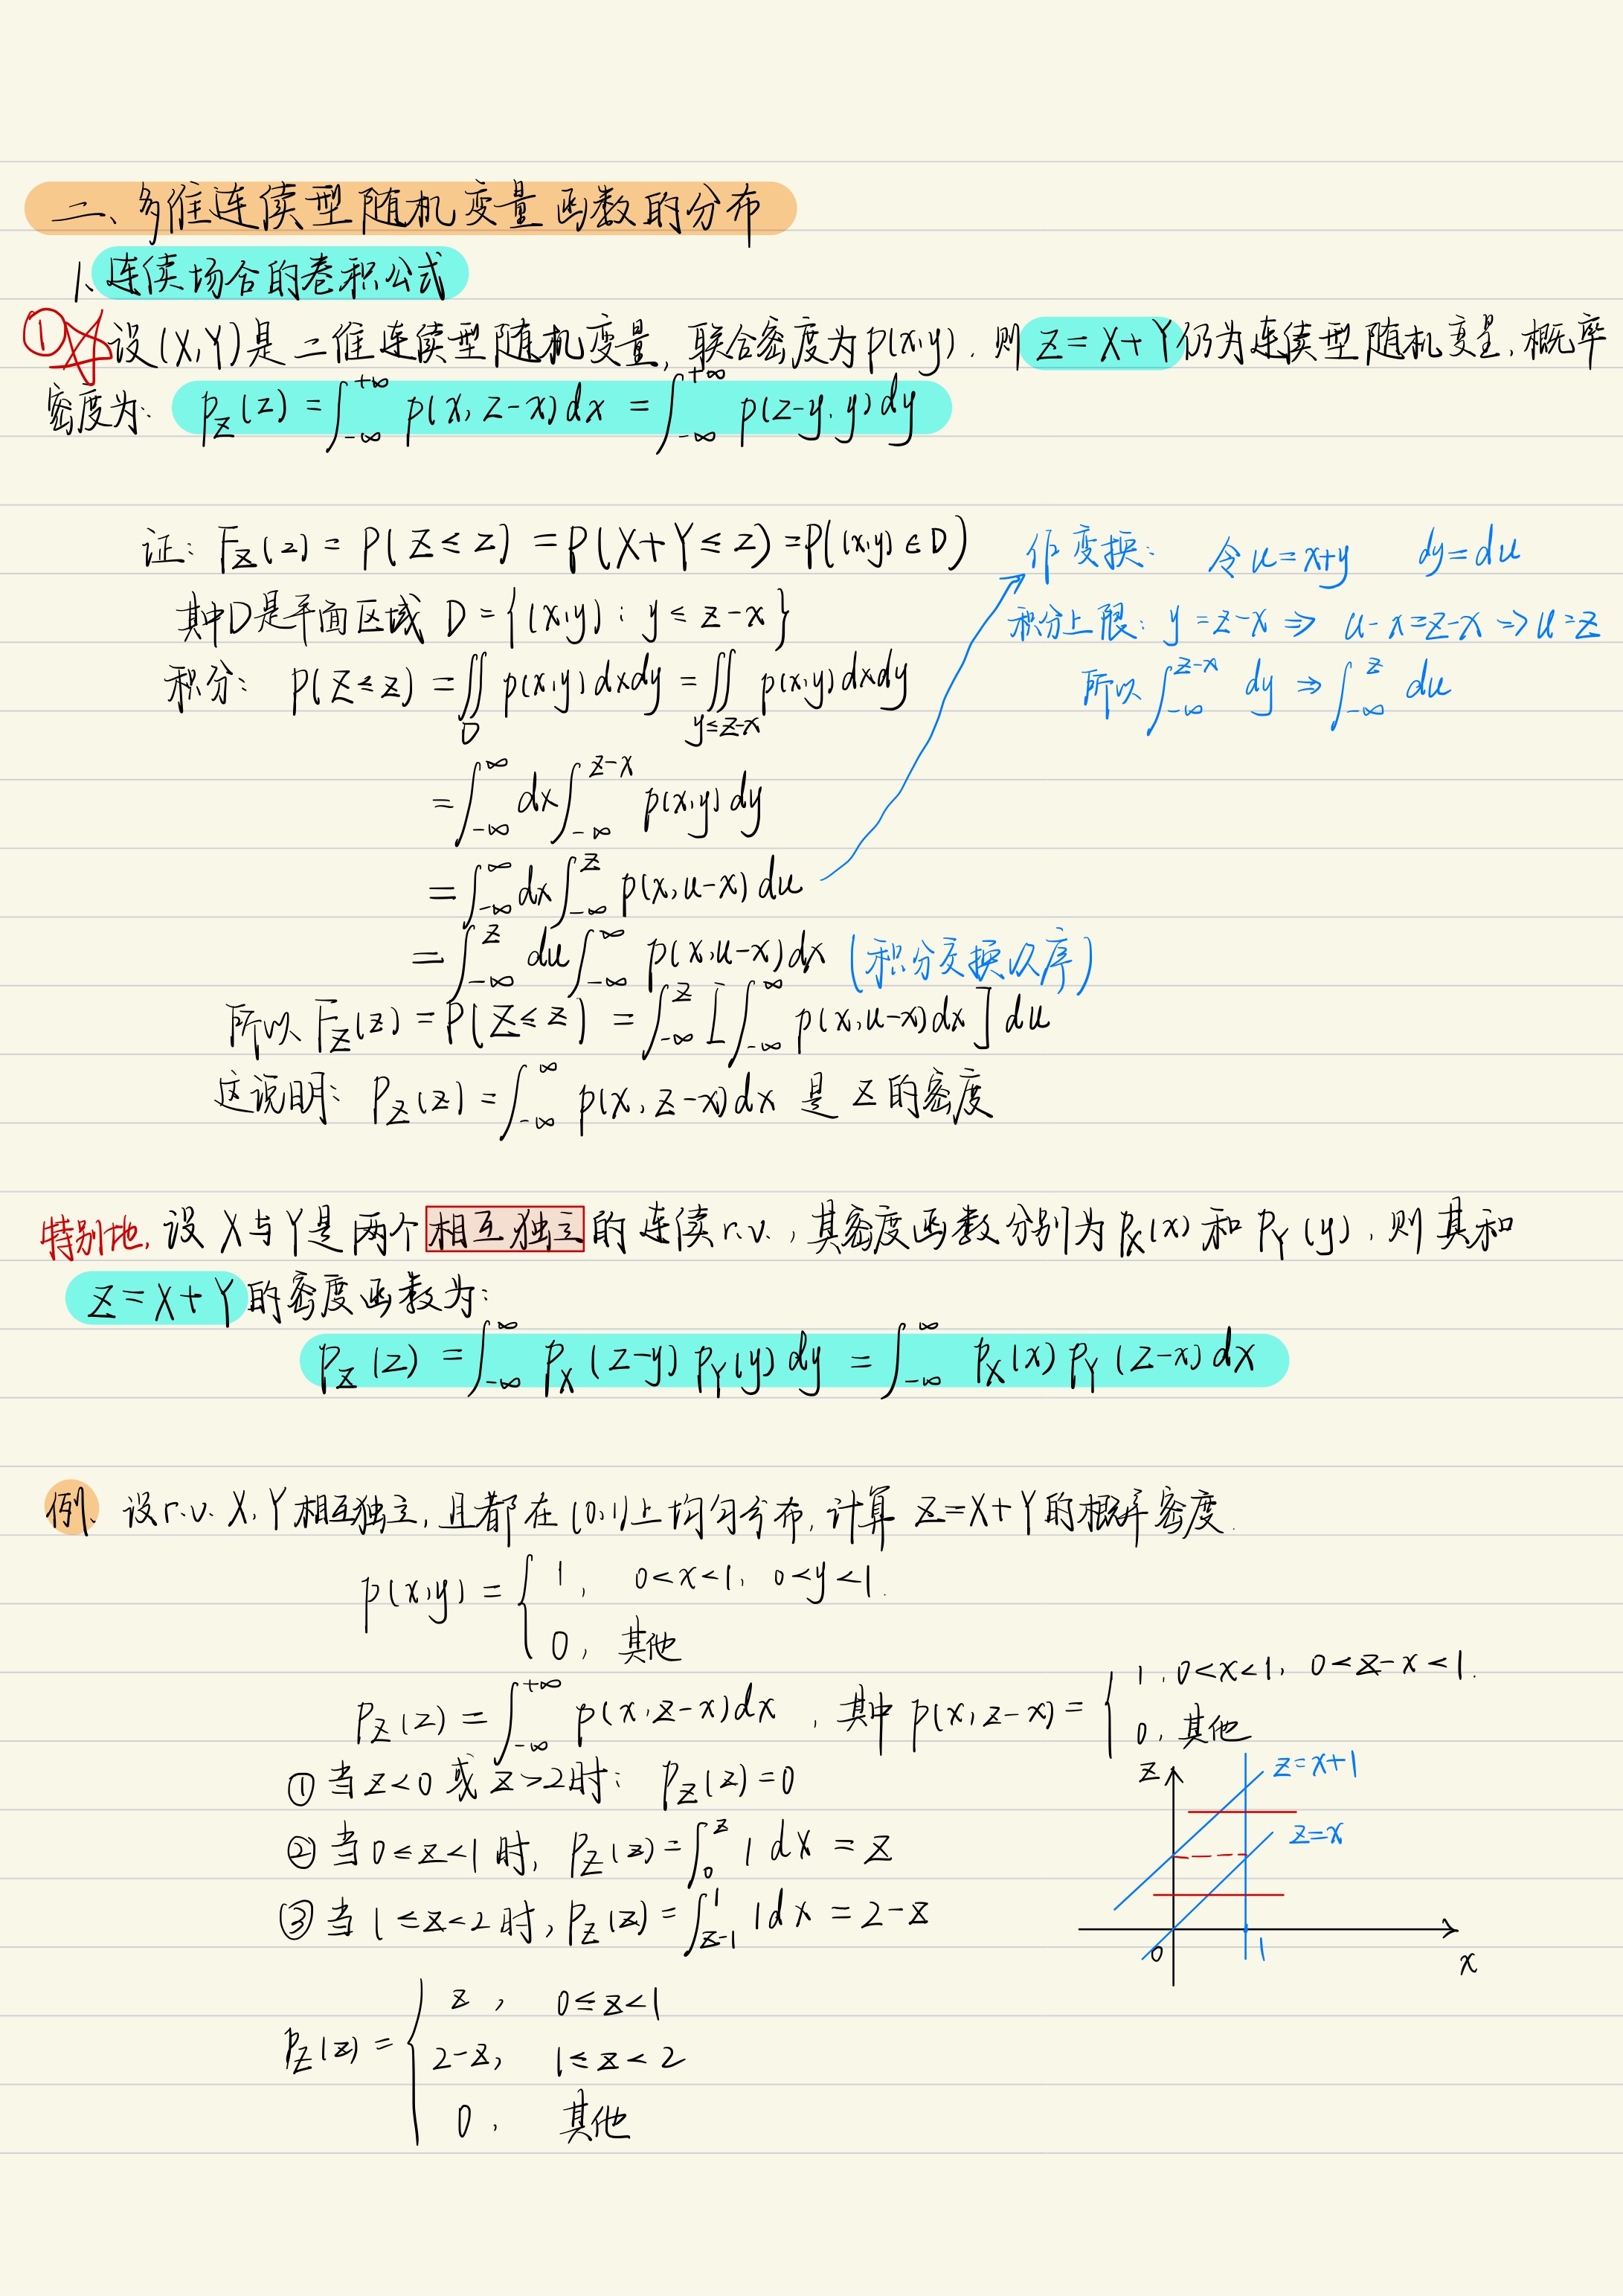 二、多维连续型随机变量函数的分布
1、连续场合的卷积公式
① 设(X,Y)是二维连续型随机变量,联合密度为p(x,y),则Z=X+Y仍为连续型随机变量,概率
密度为: p_Z(z) = ∫_{-∞}^{+∞} p(x, z-x)dx = ∫_{-∞}^{+∞} p(z-y, y)dy
证: F_Z(z) = P(Z≤z) = P(X+Y≤z) = P((x,y)∈D)
作变换: 令u=x+y dy=du
其中D是平面区域 D={(x,y): y≤z-x}
积分上限: y=z-x ⇒ u-x=z-x ⇒ u=z
积分: P(Z≤z) = ∬_D p(x,y)dxdy = ∬_{y≤z-x} p(x,y)dxdy
所以 ∫_{-∞}^{z-x} dy ⇒ ∫_{-∞}^{z} du
= ∫_{-∞}^{∞} dx ∫_{-∞}^{z-x} p(x,y)dy
= ∫_{-∞}^{∞} dx ∫_{-∞}^{z} p(x,u-x)du
= ∫_{-∞}^{z} du ∫_{-∞}^{∞} p(x,u-x)dx (积分交换次序)
所以 F_Z(z) = P(Z≤z) = ∫_{-∞}^{z} [∫_{-∞}^{∞} p(x,u-x)dx] du
这说明: p_Z(z) = ∫_{-∞}^{∞} p(x, z-x)dx 是Z的密度
特别地,设X与Y是两个相互独立的连续r.v.,其密度函数分别为p_X(x)和p_Y(y),则其和
Z=X+Y的密度函数为:
p_Z(z) = ∫_{-∞}^{∞} p_X(z-y)p_Y(y)dy = ∫_{-∞}^{∞} p_X(x)p_Y(z-x)dx
例、设r.v. X,Y相互独立,且都在(0,1)上均匀分布,计算Z=X+Y的概率密度.
p(x,y) = { 1, 0<x<1, 0<y<1.
0, 其他
p_Z(z) = ∫_{-∞}^{+∞} p(x,z-x)dx ,其中 p(x,z-x) = { 1, 0<x<1, 0<z-x<1.
0, 其他
① 当z<0或z>2时: p_Z(z)=0
② 当0≤z<1时, p_Z(z) = ∫_0^z 1dx = z
③ 当1≤z<2时, p_Z(z) = ∫_{z-1}^1 1dx = 2-z
z
z=x+1
z=x
0
1
x
p_Z(z) = { z, 0≤z<1
2-z, 1≤z<2
0, 其他